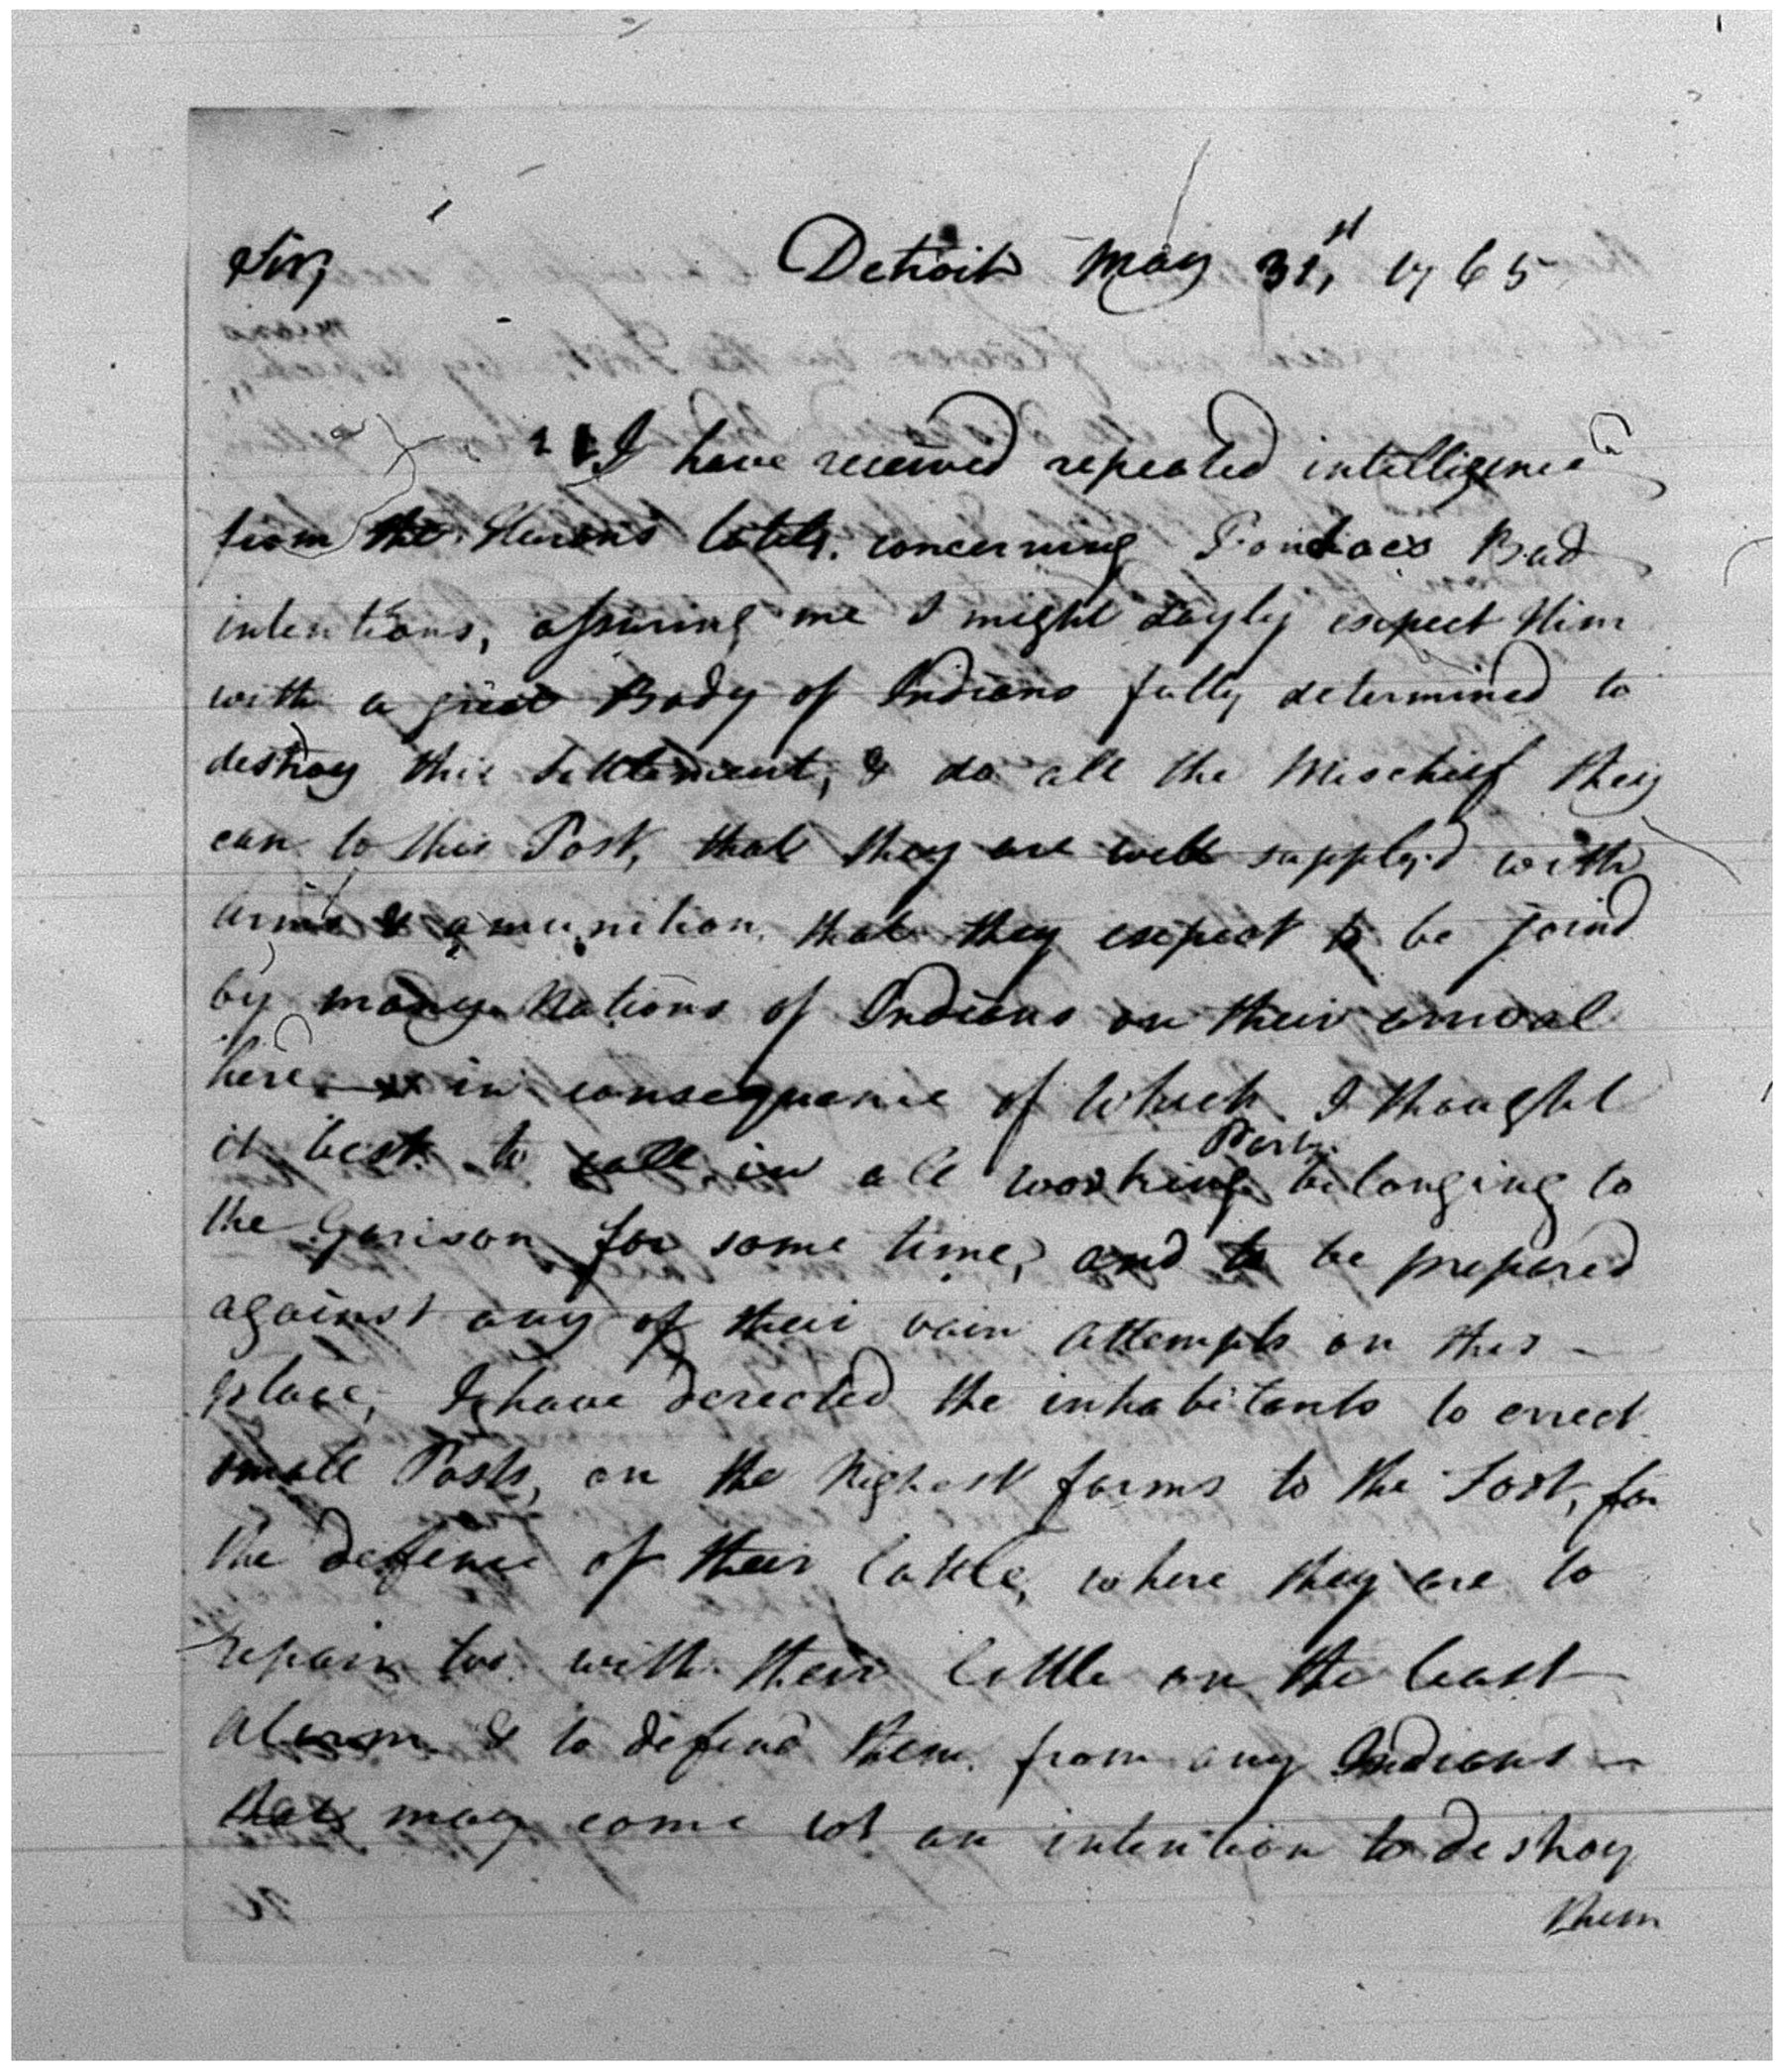 Sir,
Detroit May 31,st 1765
I have received repeated intelligence
from the Hurons lately. concerning Pondiacs Bad
intentions, assuring me I might dayly expect Him
with a great Body of Indians fully determined to
destroy this Settlement, & do all the Mischeif they
can to this Post, that they are well supply'd with
arms & amunition, that they expect to be joind
by many Nations of Indians on their arrival
here, in consequence of which I thought
it best to call in all working Party belonging to
the Garison for some time, and to be prepared
against any of their vain attempts on this
place, I have derected the inhabitants to errect
small Posts, on the highest farms to the Fort, for
the defence of their Cattle, where they are to
repair too with their Cattle on the least
alarm & to defend them from any Indians
that may come wt an intention to destroy
them